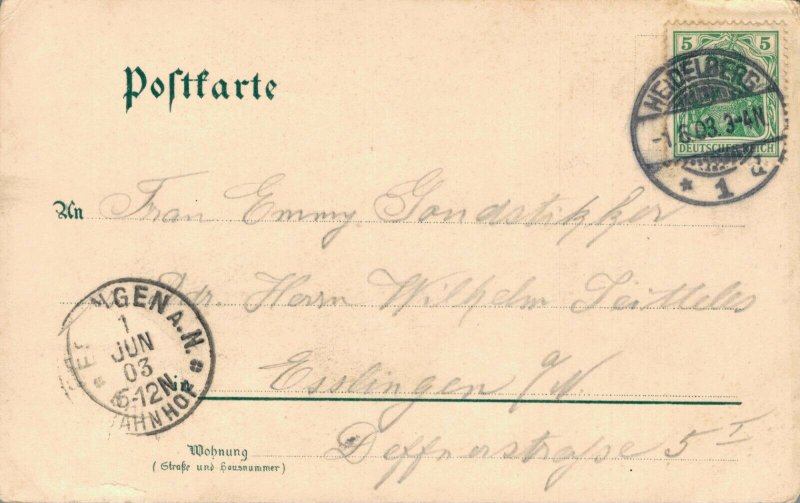 Postkarte
5 5
DEUTSCHES REICH
HEIDELBERG
-1.6.03. 3-4N.
* 1
An Frau Emmy Gondstikker
Adr. Herrn Wilhelm Teitteles
ESSLINGEN A.N.
1
JUN
03
-12N.
BAHNHOF
in Esslingen a/N.
Wohnung
(Straße und Hausnummer)
Deffnerstraße 5 I